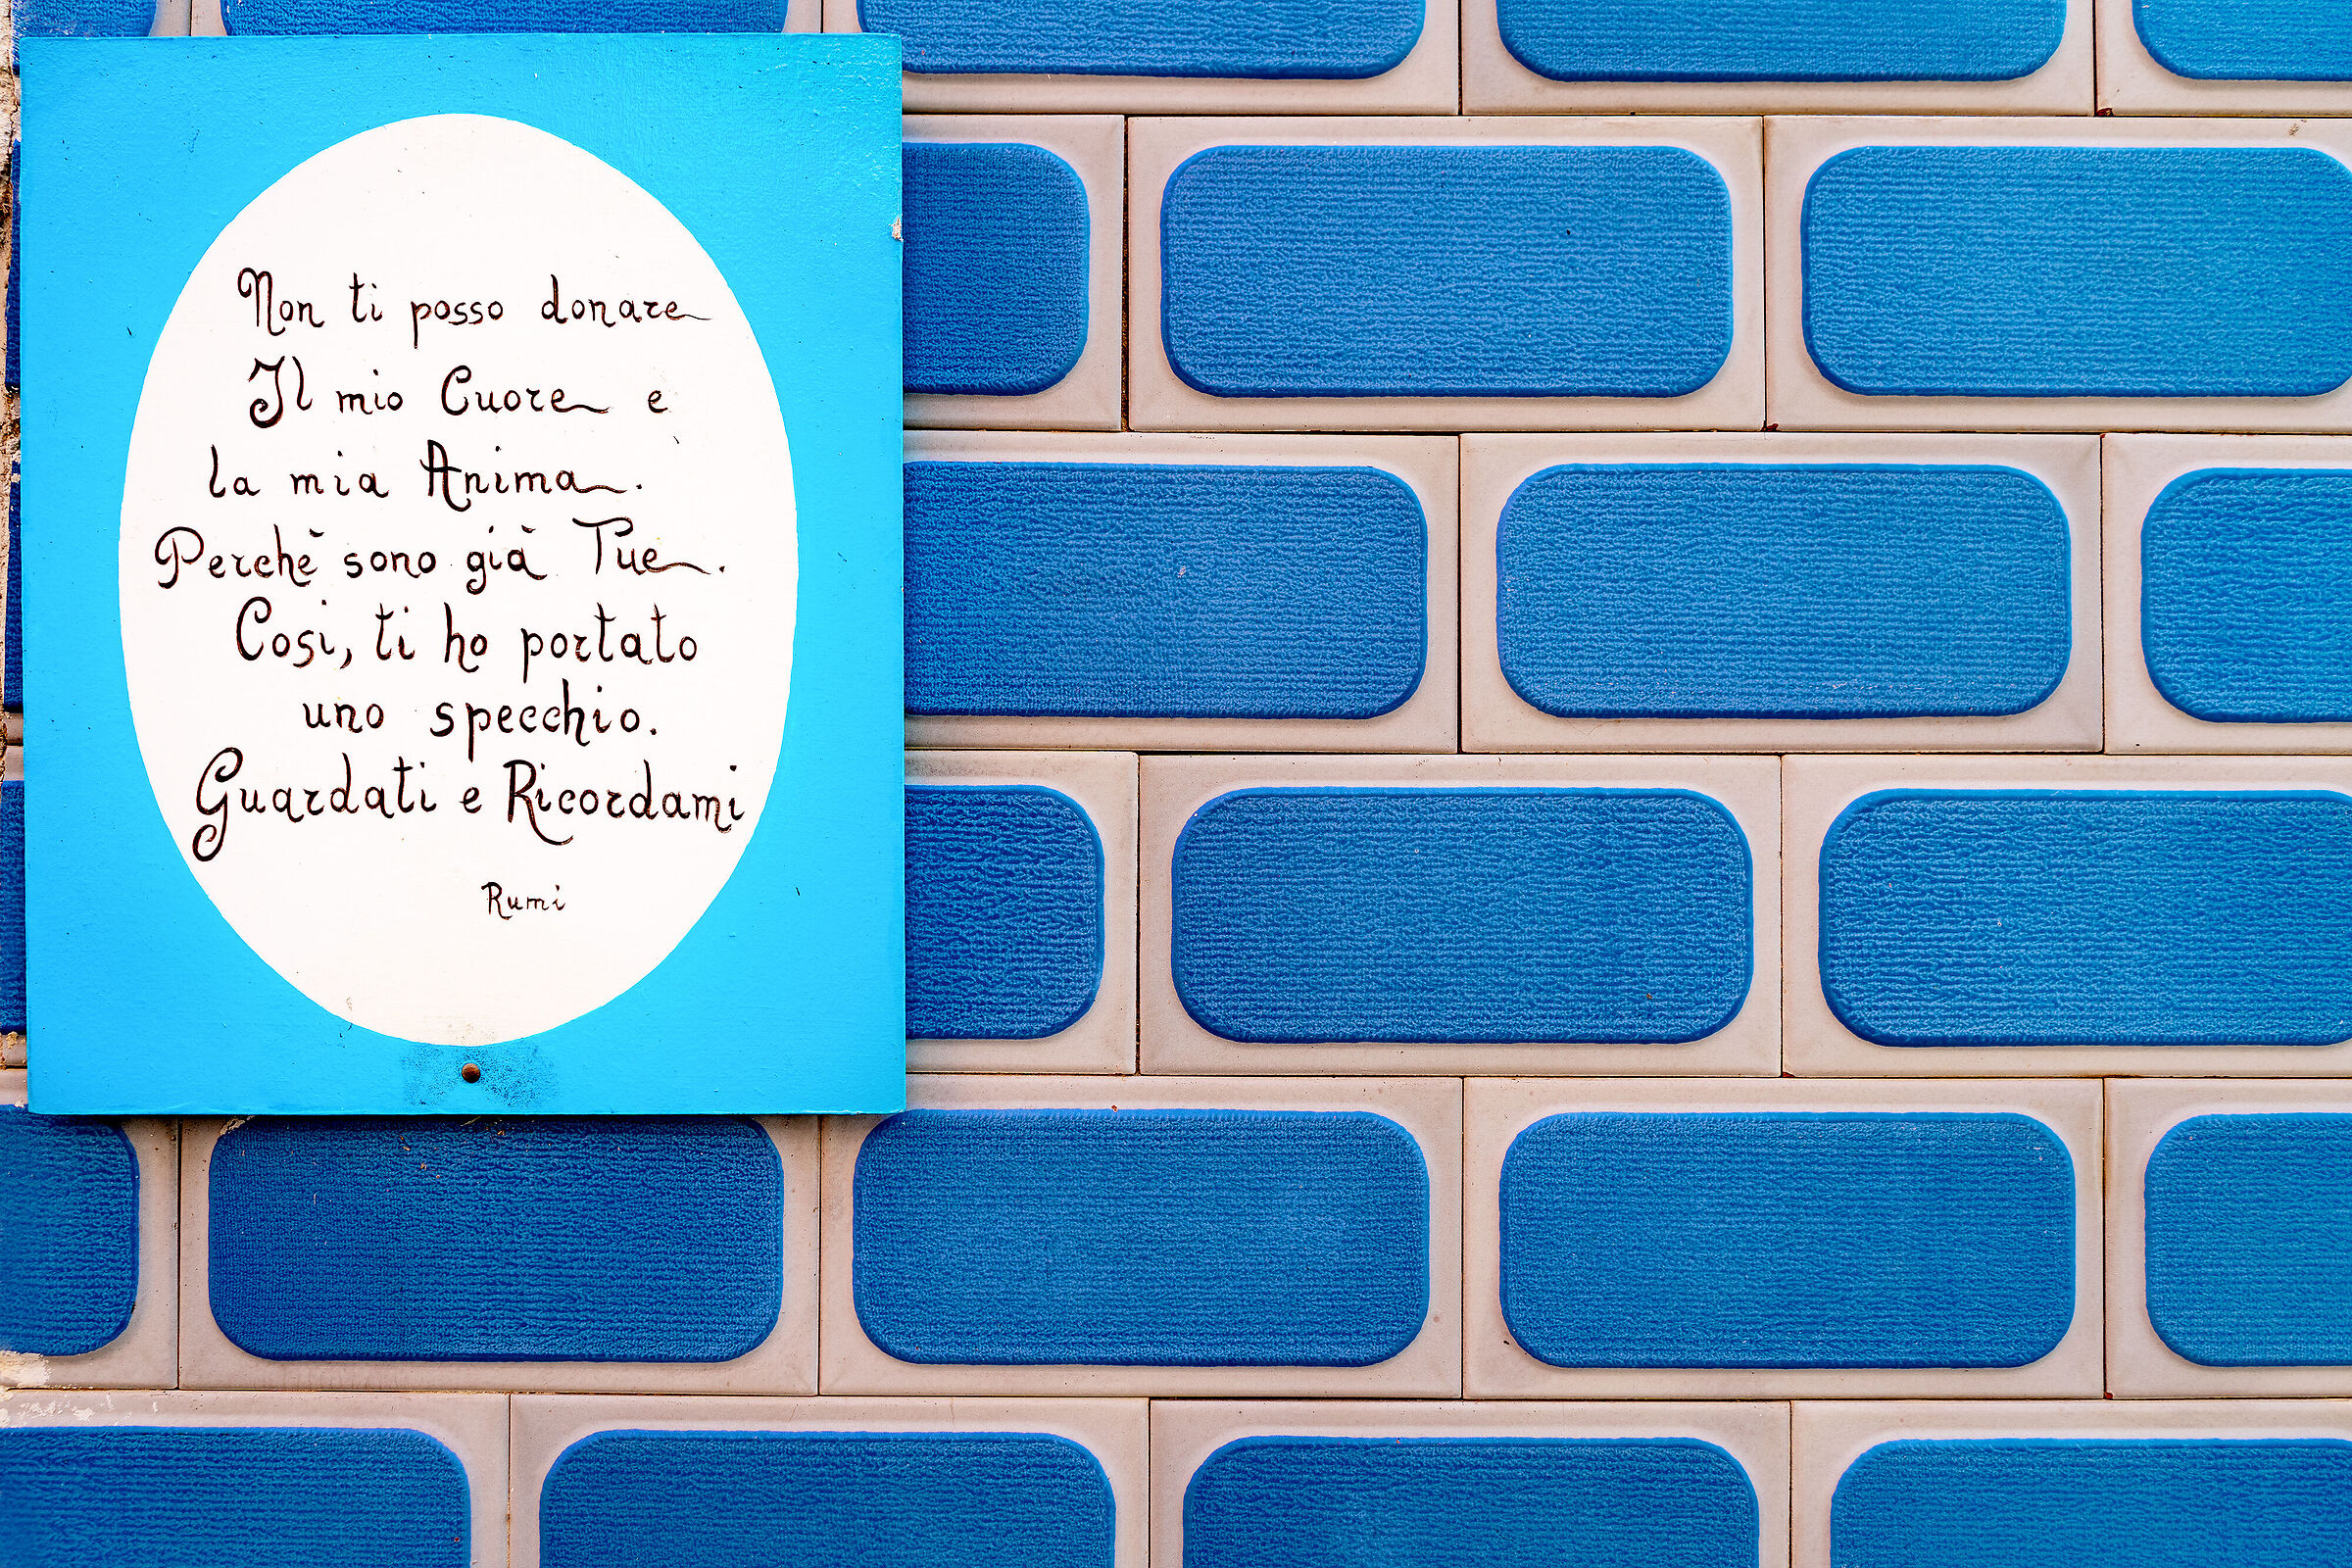 Non ti posso donare
Il mio Cuore e
la mia Anima.
Perchè sono già Tue.
Cosi, ti ho portato
uno specchio.
Guardati e Ricordami
Rumi